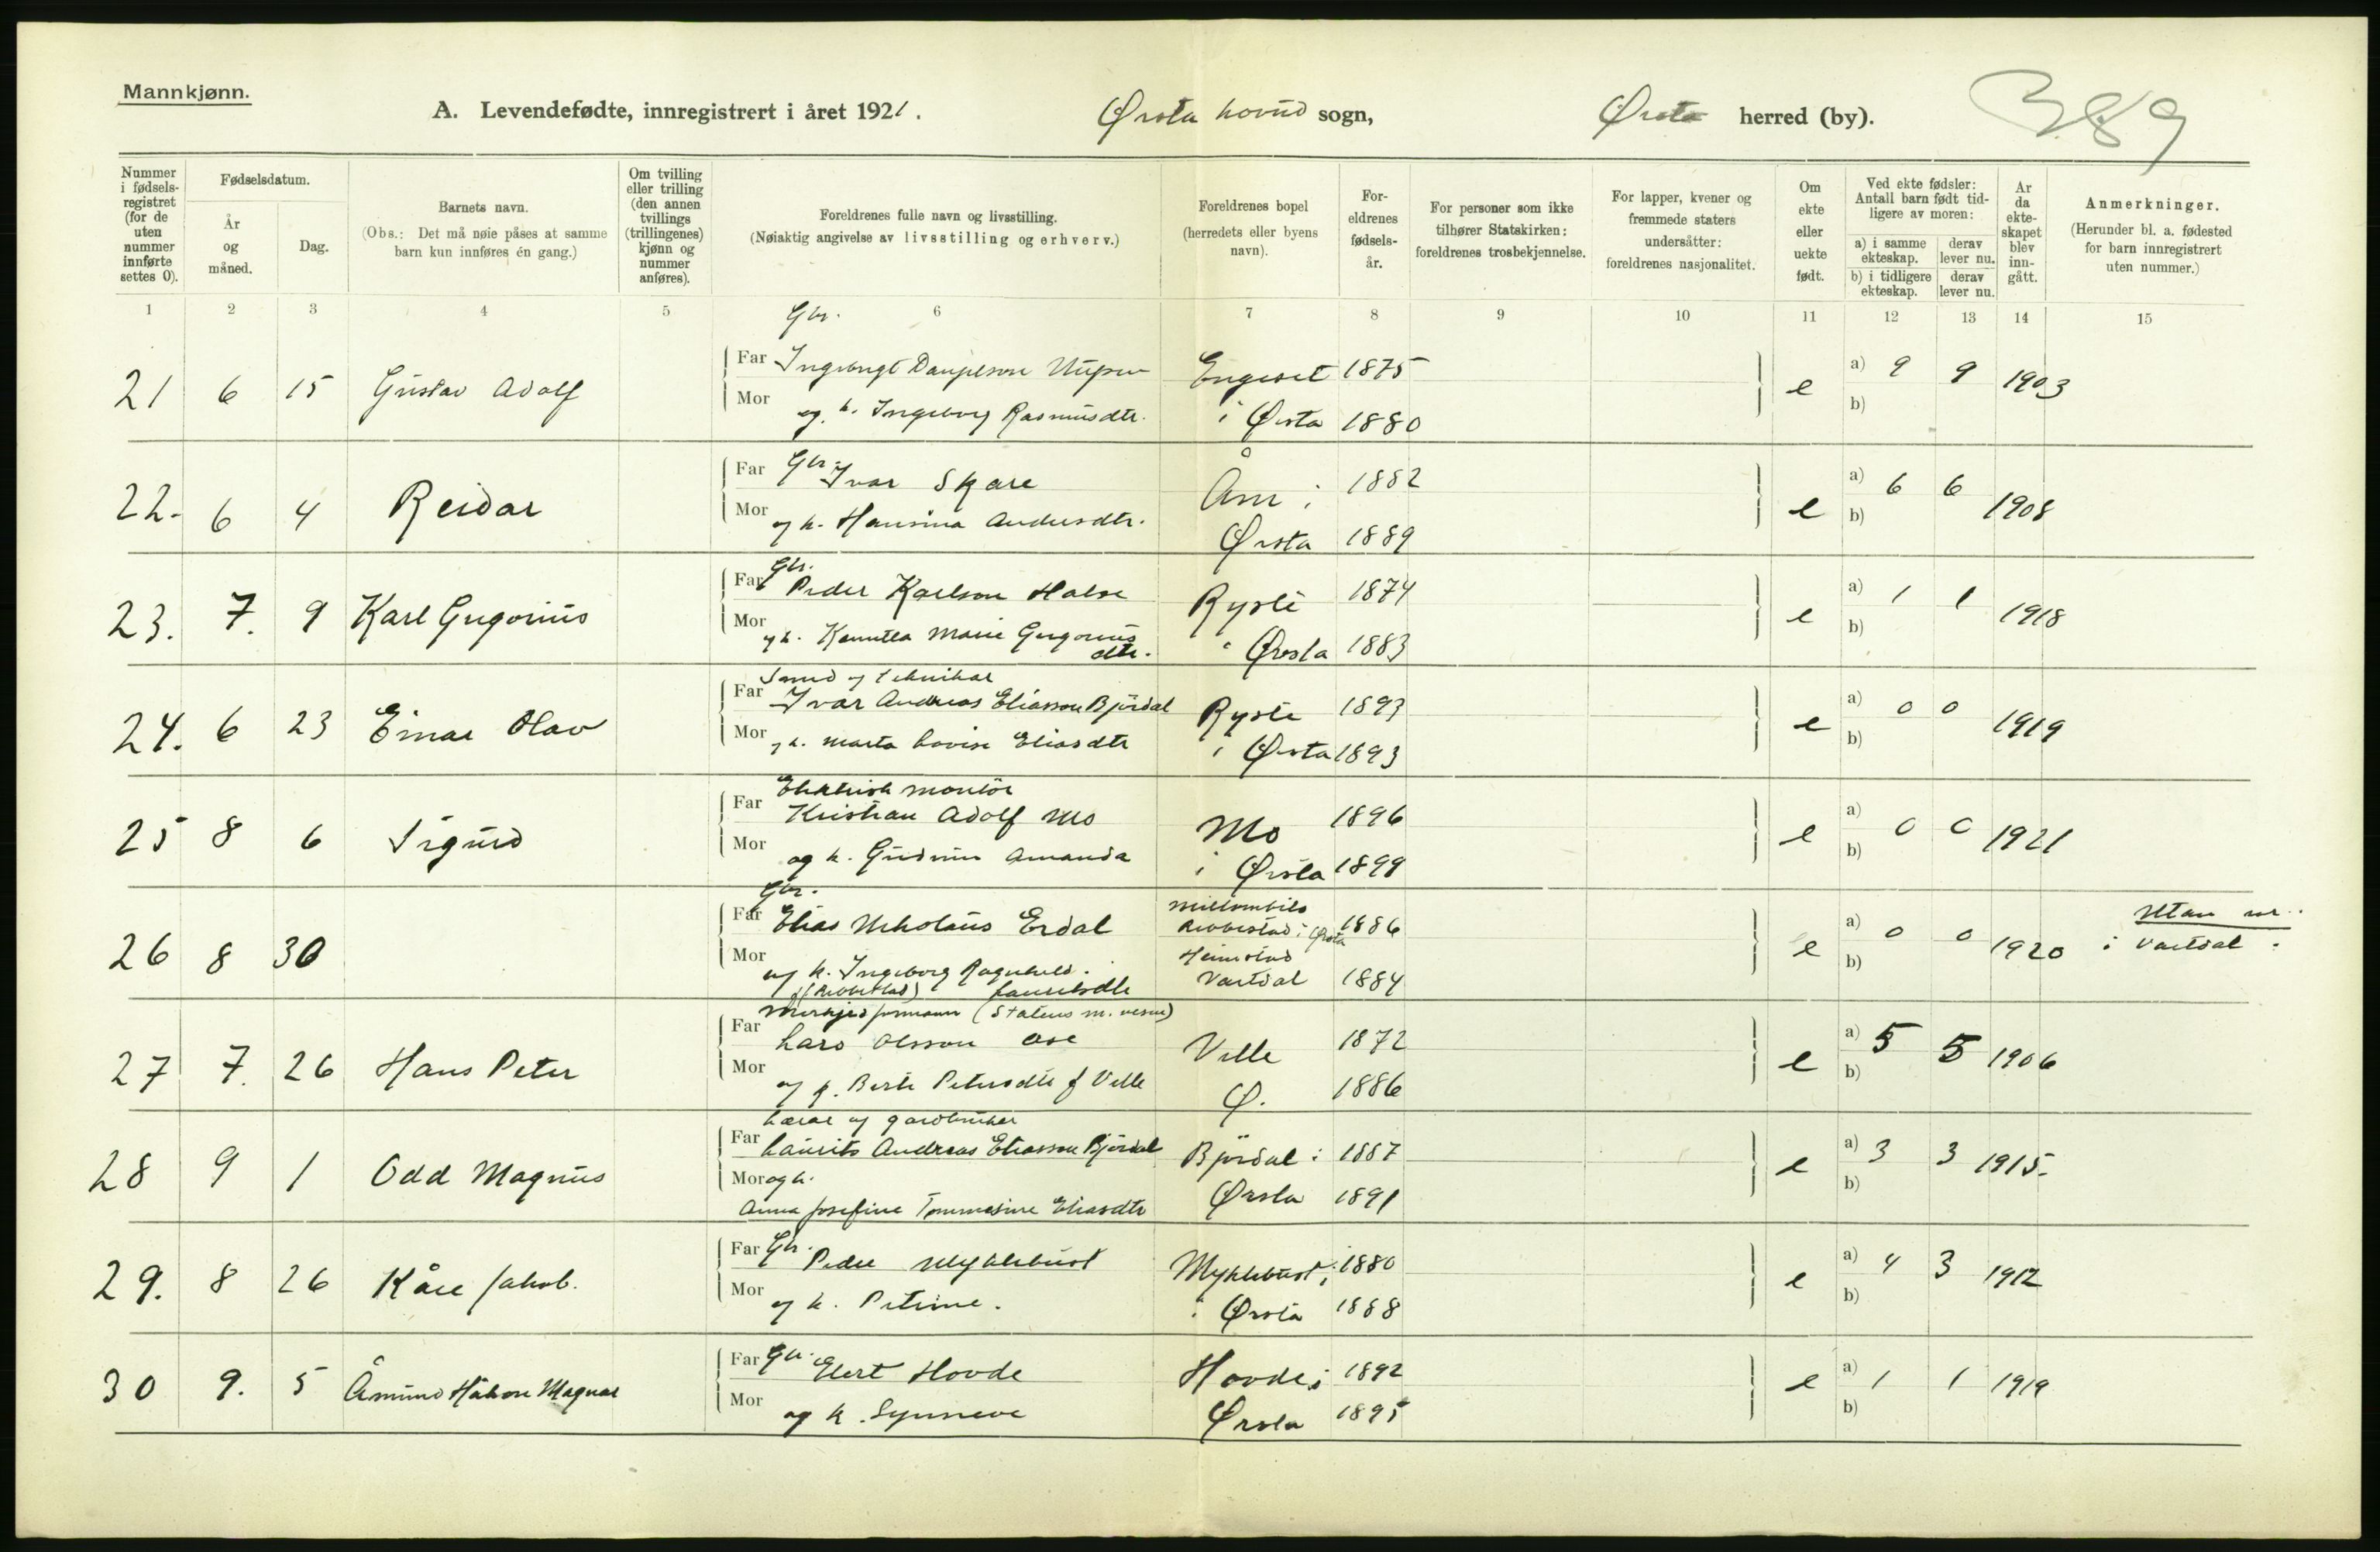 Mannkjønn.
A. Levendefødte, innregistrert i året 1921. Ørsta hovud sogn, Ørsta herred (by). 389
Nummer i fødsels-registret (for de uten nummer innførte settes 0).
Fødselsdatum.
År og måned.
Dag.
Barnets navn.
(Obs.: Det må nøie påses at samme barn kun innføres én gang.)
Om tvilling eller trilling (den annen tvillings (trillingenes) kjønn og nummer anføres).
Foreldrenes fulle navn og livsstilling.
(Nøiaktig angivelse av livsstilling og erhverv.)
Foreldrenes bopel (herredets eller byens navn).
For-eldrenes fødsels-år.
For personer som ikke tilhører Statskirken: foreldrenes trosbekjennelse.
For lapper, kvener og fremmede staters undersåtter: foreldrenes nasjonalitet.
Om ekte eller uekte født.
Ved ekte fødsler: Antall barn født tid-ligere av moren:
a) i samme ekteskap.
derav lever nu.
b) i tidligere ekteskap.
derav lever nu.
Ar da ekte-skapet blev inn-gått.
Anmerkninger.
(Herunder bl. a. fødested for barn innregistrert uten nummer.)
1 2 3 4 5 6 7 8 9 10 11 12 13 14 15
Gbr.
21 6 15 Gustav Adolf Far Ingebrigt Engeset 1875 e a) 9 9 1903
Mor og k. Ingeborg Rasmusdtr. i Ørsta 1880 b)
22. 6 4 Reidar Far Gbr. Ivar Skare Åm i 1882 e a) 6 6 1908
Mor og k. Hansina Andersdtr. Ørsta 1889 b)
Gbr.
23. 7. 9 Karl Gregorius Far Peder Karlson Halse Ryste 1874 e a) 1 1 1918
Mor og k. Marie Gregorius dtr. i Ørsta 1883 b)
Smed og teknikar
24. 6 23 Einar Olav Far Ivar Andreas Eliasson Bjørdal Ryste 1893 e a) 0 0 1919
Mor og k. Marta Lovise Eliasdtr i Ørsta 1893 b)
Elektrisk montör
25 8 6 Sigurd Far Kristian Adolf Mo Mo 1896 e a) 0 0 1921
Mor og k. Gudrun Amanda i Ørsta 1899 b)
Gbr.
26 8 30 Far Elias Nikolaus Erdal Millombils Rebbestad i Ørsta 1886 e a) 0 0 1920 Utan nr.
Mor og k. Ingeborg Ragnhild Lauritsdtr f (Rebbestad) Heimstad Vartdal 1884 b) i Vartdal.
formann (Statens m. vesen)
27 7. 26 Hans Peter Far Lars Olsson Ose Velle 1872 e a) 5 5 1906
Mor og k. Berte Petersdtr f Velle Ø. 1886 b)
Lærar og gardbruker
28 9 1 Odd Magnus Far Laurits Andreas Eliasson Bjørdal Bjørdal i 1887 e a) 3 3 1915.
Mor og k. Anna Josefine Tommesine Eliasdtr Ørsta 1891 b)
29. 8 26 Kåre Jakob. Far Gbr. Peder Myklebust Myklebust i 1880 e a) 4 3 1912
Mor og k. Petrine. i Ørsta 1888 b)
30 9. 5 Åmund Håkon Magnar Far Gbr. Elert Hovde Hovde i 1892 e a) 1 1 1919
Mor og k. Synneve Ørsta 1895 b)